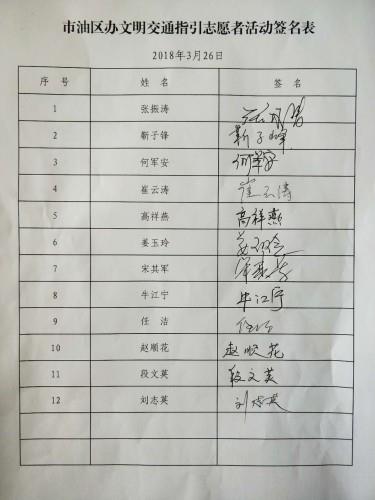 市油区办文明交通指引志愿者活动签名表
2018年3月26日
序号 姓名 签名
1 张振涛
2 靳子锋 靳子峰
3 何军安 何军安
4 崔云涛 崔云涛
5 高祥燕 高祥燕
6 姜玉玲 姜玉玲
7 宋其军
8 牛江宁 牛江宁
9 任洁 任洁
10 赵顺花 赵顺花
11 段文英 段文英
12 刘志英 刘志英